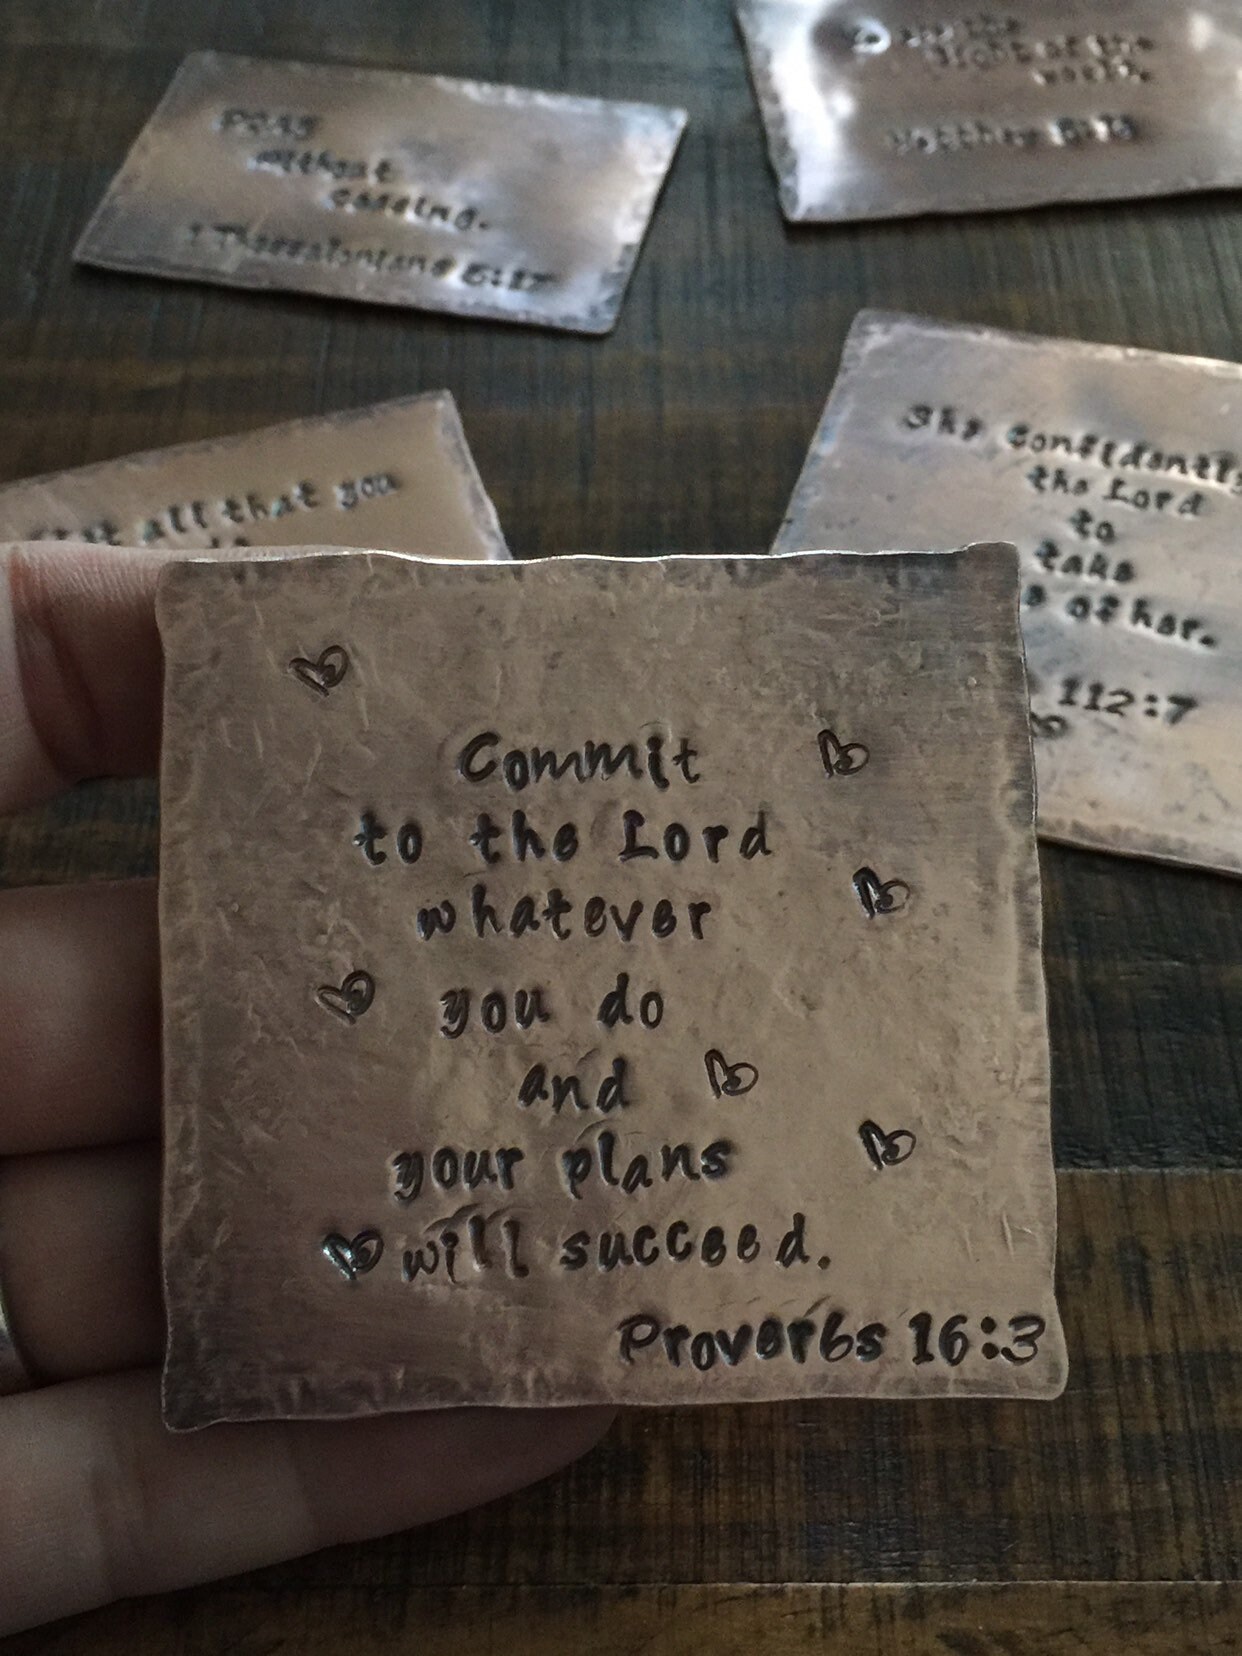 Pray
without
ceasing.
1 Thessalonians 5:17
the
light of the
world.
Matthew
all that you
She confidently
the Lord
to
take
of her.
112:7
Commit
to the Lord
whatever
you do
and
your plans
will succeed.
Proverbs 16:3